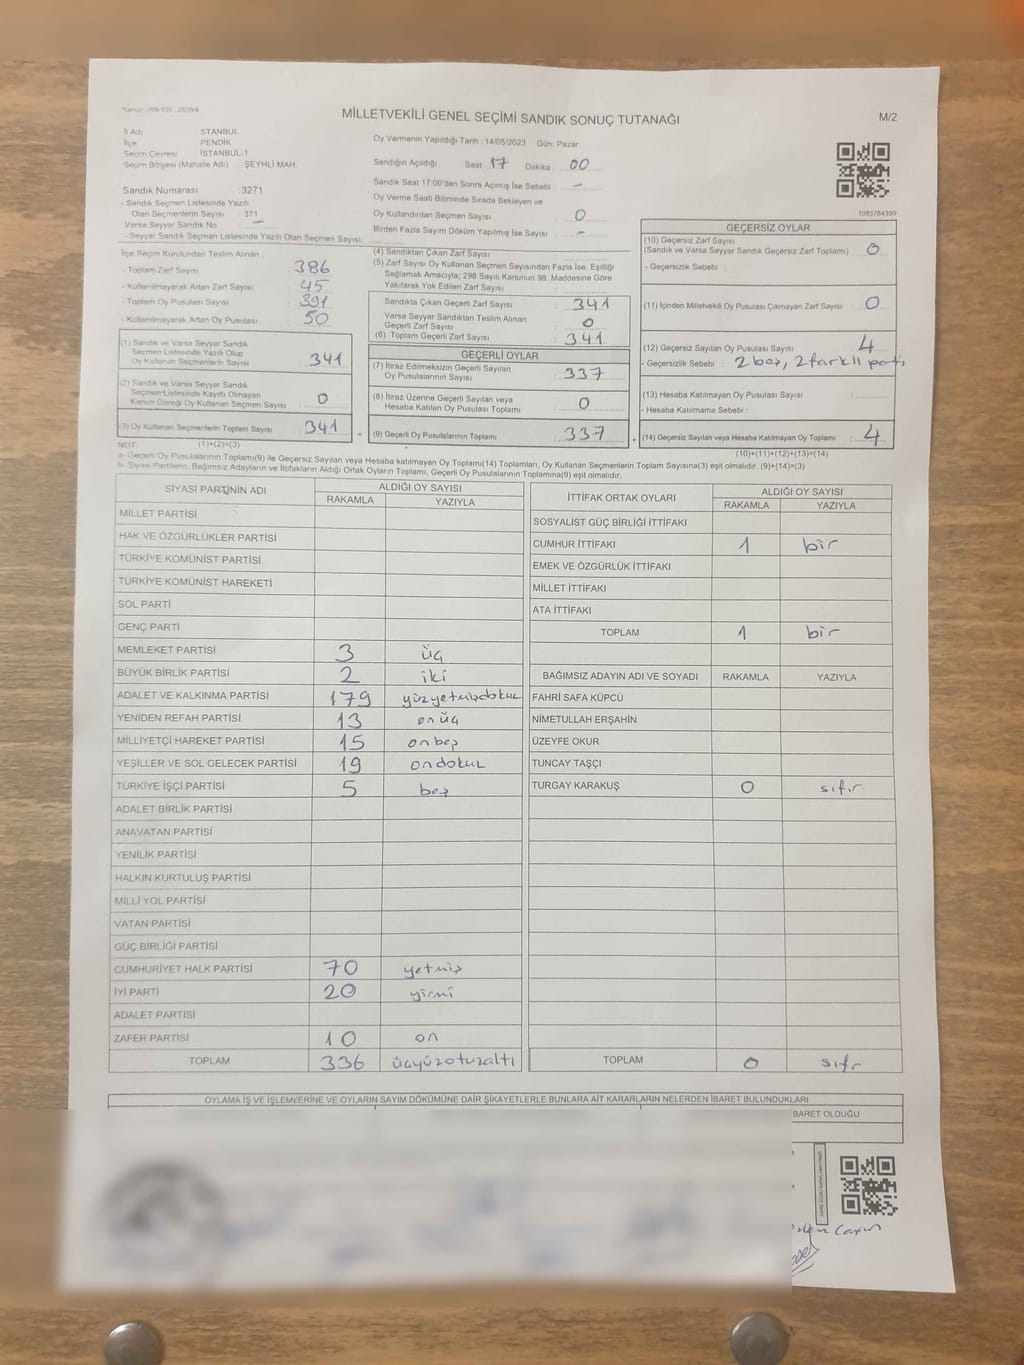 MİLLETVEKİLİ GENEL SEÇİMİ SANDIK SONUÇ TUTANAĞI
M/2
İl Adı İSTANBUL
İlçe PENDİK
Seçim Çevresi İSTANBUL-1
Seçim Bölgesi (Mahalle Adı) ŞEYHLİ MAH.
Sandık Numarası :3271
- Sandık Seçmen Listesinde Yazılı
Olan Seçmenlerin Sayısı 371
Varsa Seyyar Sandık No –
- Seyyar Sandık Seçmen Listesinde Yazılı Olan Seçmen Sayısı:
Oy Vermenin Yapıldığı Tarih : 14/05/2023 Gün: Pazar
Sandığın Açıldığı Saat: 17 Dakika : 00
Sandık Saat 17:00'den Sonra Açılmış İse Sebebi : –
Oy Verme Saati Bitiminde Sırada Bekleyen ve
Oy Kullandırılan Seçmen Sayısı : 0
Birden Fazla Sayım Döküm Yapılmış İse Sayısı : –
1083784399
İlçe Seçim Kurulundan Teslim Alınan :
- Toplam Zarf Sayısı : 386
- Kullanılmayarak Artan Zarf Sayısı : 45
- Toplam Oy Pusulası Sayısı : 391
- Kullanılmayarak Artan Oy Pusulası : 50
(1) Sandık ve Varsa Seyyar Sandık
Seçmen Listesinde Yazılı Olup
Oy Kullanan Seçmenlerin Sayısı : 341
(2) Sandık ve Varsa Seyyar Sandık
Seçmen Listesinde Kayıtlı Olmayan
Kanun Gereği Oy Kullanan Seçmen Sayısı : 0
(3) Oy Kullanan Seçmenlerin Toplam Sayısı : 341
NOT: (1)+(2)=(3)
(4) Sandıktan Çıkan Zarf Sayısı :
(5) Zarf Sayısı Oy Kullanan Seçmen Sayısından Fazla İse, Eşitliği
Sağlamak Amacıyla; 298 Sayılı Kanunun 98. Maddesine Göre
Yakılarak Yok Edilen Zarf Sayısı :
Sandıkta Çıkan Geçerli Zarf Sayısı : 341
Varsa Seyyar Sandıktan Teslim Alınan
Geçerli Zarf Sayısı : 0
(6) Toplam Geçerli Zarf Sayısı : 341
GEÇERLİ OYLAR
(7) İtiraz Edilmeksizin Geçerli Sayılan
Oy Pusulalarının Sayısı : 337
(8) İtiraz Üzerine Geçerli Sayılan veya
Hesaba Katılan Oy Pusulası Toplamı : 0
= (9) Geçerli Oy Pusulalarının Toplamı : 337
GEÇERSİZ OYLAR
(10) Geçersiz Zarf Sayısı
(Sandık ve Varsa Seyyar Sandık Geçersiz Zarf Toplamı) : 0
- Geçersizlik Sebebi :
(11) İçinden Milletvekili Oy Pusulası Çıkmayan Zarf Sayısı : 0
(12) Geçersiz Sayılan Oy Pusulası Sayısı : 4
- Geçersizlik Sebebi : 2 boş, 2 farklı parti
(13) Hesaba Katılmayan Oy Pusulası Sayısı :
- Hesaba Katılmama Sebebi :
+ (14) Geçersiz Sayılan veya Hesaba Katılmayan Oy Toplamı : 4
(10)+(11)+(12)+(13)=(14)
a- Geçerli Oy Pusulalarının Toplamı(9) ile Geçersiz Sayılan veya Hesaba katılmayan Oy Toplamı(14) Toplamları, Oy Kullanan Seçmenlerin Toplam Sayısına(3) eşit olmalıdır. (9)+(14)=(3)
b- Siyasi Partilerin, Bağımsız Adayların ve İttifakların Aldığı Ortak Oyların Toplamı, Geçerli Oy Pusulalarının Toplamına(9) eşit olmalıdır.
SİYASİ PARTİNİN ADI ALDIĞI OY SAYISI
RAKAMLA YAZIYLA
MİLLET PARTİSİ
HAK VE ÖZGÜRLÜKLER PARTİSİ
TÜRKİYE KOMÜNİST PARTİSİ
TÜRKİYE KOMÜNİST HAREKETİ
SOL PARTİ
GENÇ PARTİ
MEMLEKET PARTİSİ 3 üç
BÜYÜK BİRLİK PARTİSİ 2 iki
ADALET VE KALKINMA PARTİSİ 179 yüzyetmişdokuz
YENİDEN REFAH PARTİSİ 13 onüç
MİLLİYETÇİ HAREKET PARTİSİ 15 onbeş
YEŞİLLER VE SOL GELECEK PARTİSİ 19 ondokuz
TÜRKİYE İŞÇİ PARTİSİ 5 beş
ADALET BİRLİK PARTİSİ
ANAVATAN PARTİSİ
YENİLİK PARTİSİ
HALKIN KURTULUŞ PARTİSİ
MİLLİ YOL PARTİSİ
VATAN PARTİSİ
GÜÇ BİRLİĞİ PARTİSİ
CUMHURİYET HALK PARTİSİ 70 yetmiş
İYİ PARTİ 20 yirmi
ADALET PARTİSİ
ZAFER PARTİSİ 10 on
TOPLAM 336 üçyüzotuzaltı
İTTİFAK ORTAK OYLARI ALDIĞI OY SAYISI
RAKAMLA YAZIYLA
SOSYALİST GÜÇ BİRLİĞİ İTTİFAKI
CUMHUR İTTİFAKI 1 bir
EMEK VE ÖZGÜRLÜK İTTİFAKI
MİLLET İTTİFAKI
ATA İTTİFAKI
TOPLAM 1 bir
BAĞIMSIZ ADAYIN ADI VE SOYADI RAKAMLA YAZIYLA
FAHRİ SAFA KÜPCÜ
NİMETULLAH ERŞAHİN
ÜZEYFE OKUR
TUNCAY TAŞÇI
TURGAY KARAKUŞ 0 sıfır
TOPLAM 0 sıfır
OYLAMA İŞ VE İŞLEMLERİNE VE OYLARIN SAYIM DÖKÜMÜNE DAİR ŞİKAYETLERLE BUNLARA AİT KARARLARIN NELERDEN İBARET BULUNDUKLARI
BARET OLDUĞU